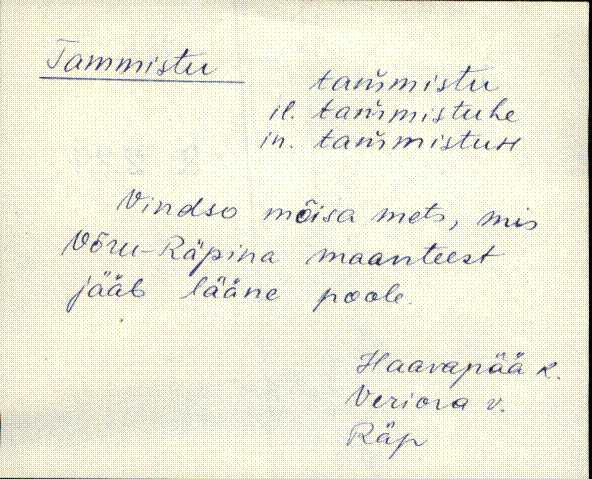 Tammistu
tam̆mistu
il. tam̆mistuhe
in. tam̆mistuʜ
Vindso mõisa mets, mis
Võru-Räpina maanteest
jääb lääne poole.
Haavapää k.
Veriora v.
Räp